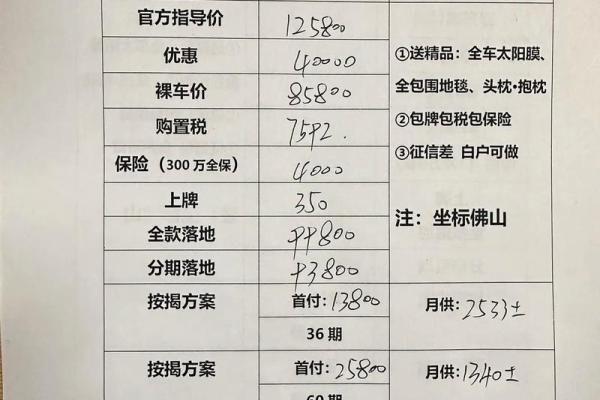 官方指导价 125800
优惠 40000
裸车价 85800
购置税 7592.
保险（300万全保） 4000
上牌 350
全款落地 99800
分期落地 93800
①送精品：全车太阳膜、
全包围地毯、头枕·抱枕
②包牌包税包保险
③征信差 白户可做
注：坐标佛山
按揭方案 首付：13800 月供：2533±
36期
按揭方案 首付：25800 月供：1340±
60期